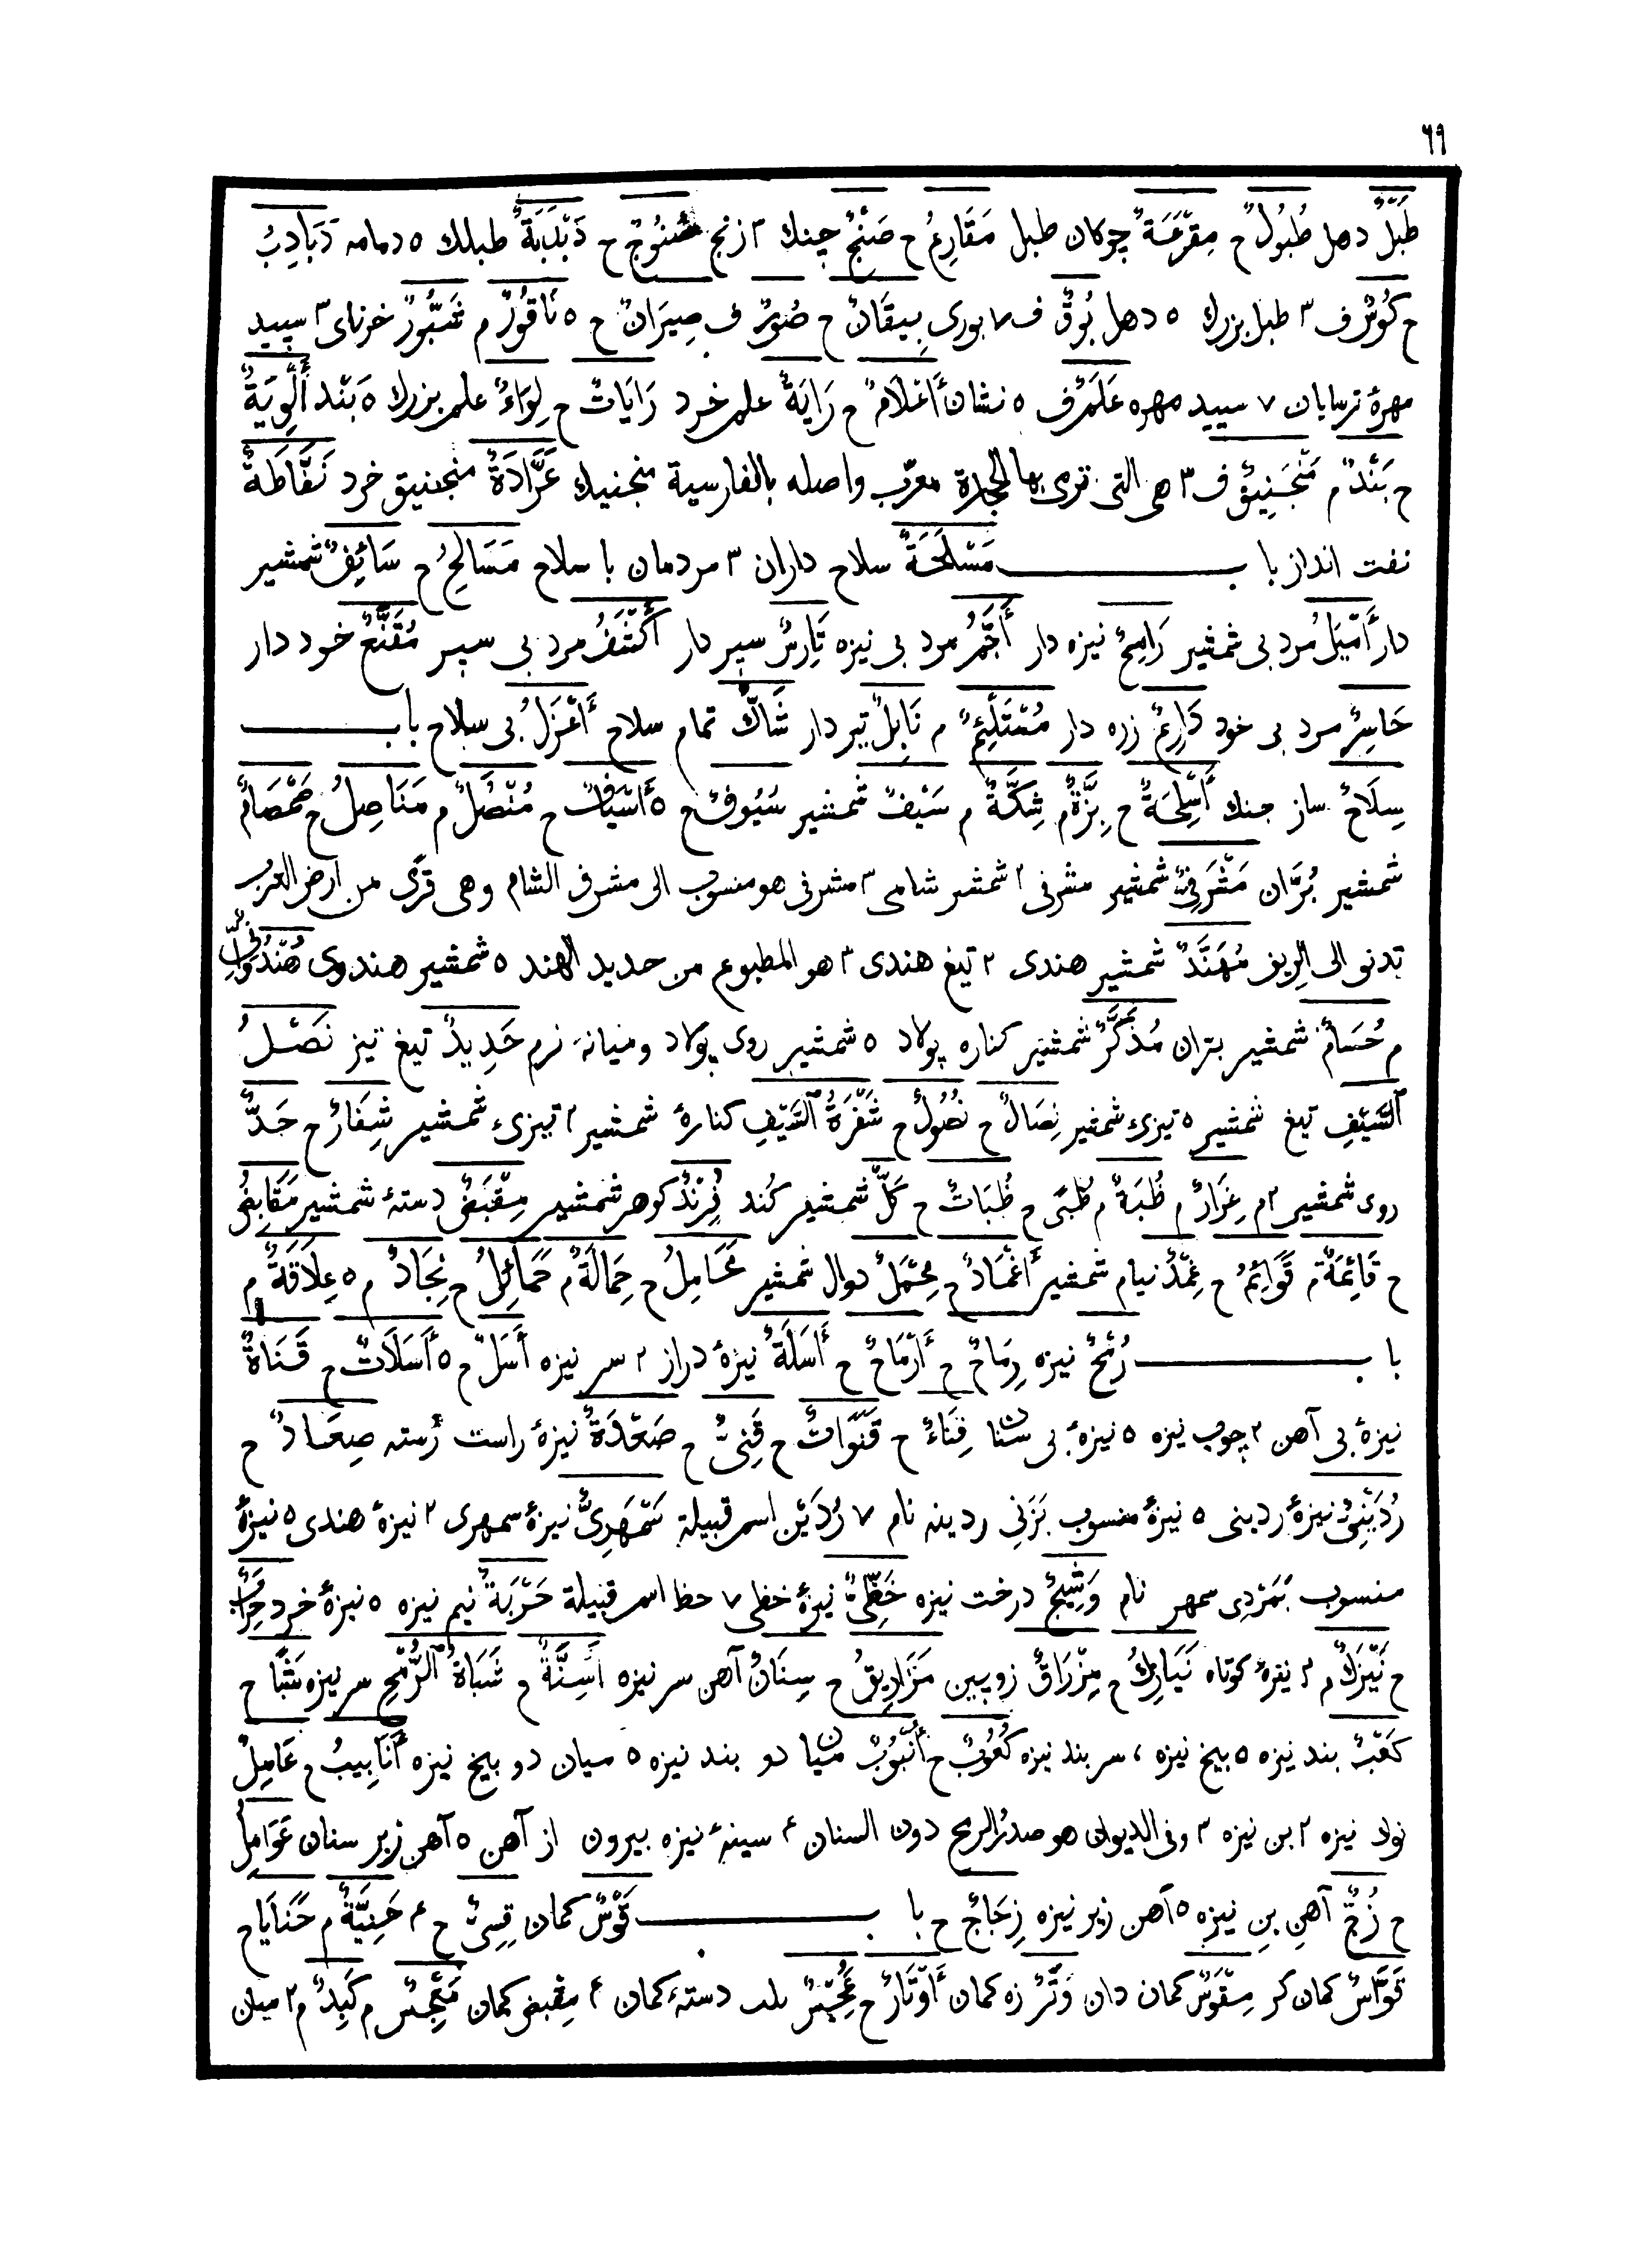 ٦٩
طَبْلٌ دهل طُبُولٌ ح مِقْرَعَةٌ چوكان طبل مَقَارِعُ ح صَنْجٌ چنك ٣ زنج صُنُوجٌ ح دَبْدَبَةٌ طبلك ٥ دمامه دَبَادِبُ
ح كُوْسٌ ف ٣ طبل بزرك ٥ دهل بُوْقٌ ف ٧ بورى بِيقَانٌ ح صُوْرٌ ف صِيرَانٌ ح ٥ نَاقُوْرٌ م شَبُّوْرٌ خرناى ٣ سپيد
مهرهٔ ترسايان ٧ سپيد مهره عَلَمٌ ف ٥ نشان أَعْلَامٌ ح رَايَةٌ علم خرد رَايَاتٌ ح لِوَاءٌ علم بزرك ٥ بَنْد أَلْوِيَةٌ
ح بَنْدٌ م مَنْجَنِيقٌ ف ٣ هى التى ترمى بها الحجارة معرّب واصله بالفارسية منجنيك عَرَّادَةٌ منجنيق خرد نَفَّاطَةٌ
نفت انداز باب مَسْلَحَةٌ سلاح داران ٣ مردمان با سلاح مَسَالِحُ ح سَائِفٌ شمشير
دار أَمْيَلُ مرد بى شمشير رَامِحٌ نيزه دار أَجَمُّ مرد بى نيزه تَارِسٌ سپر دار أَكْشَفُ مرد بى سپر مُقَنَّعٌ خود دار
حَاسِرٌ مرد بى خود دَارِعٌ زره دار مُسْتَلْئِمٌ م نَابِلٌ تير دار شَاكٌّ تمام سلاح أَعْزَلُ بى سلاح باب
سِلَاحٌ ساز جنك أَسْلِحَةٌ ح بِزَّةٌ م شِكَّةٌ م سَيْفٌ شمشير سُيُوفٌ ح ٥ أَسْيَافٌ ح مُنْصُلٌ م مَنَاصِلُ ح صَمْصَامٌ
شمشير بُرَّان مَشْرَفِيٌّ شمشير مشرفى ٢ شمشير شامى ٣ مشرفى هو منسوب الى مشرف الشام وهى قرًى من ارض العرب
تدنو الى الريف مُهَنَّدٌ شمشير هندى ٢ تيغ هندى ٣ هو المطبوع من حديد الهند ٥ شمشير هندوى هُنْدُوَانِيٌّ
م حُسَامٌ شمشير بران مُذَكَّرٌ شمشير كناره پولاد ٥ شمشير روى پولاد و ميانه نرم حَدِيدٌ تيغ تيز نَصْلُ
ٱلسَّيْفِ تيغ شمشير ٥ تيزىٔ شمشير نِصَالٌ ح نُصُولٌ ح شَفْرَةُ ٱلسَّيْفِ كنارهٔ شمشير ٢ تيزىٔ شمشير شِفَارٌ ح حَدٌّ
روى شمشير ٢ م غِرَارٌ م ظُبَةٌ م ظُبًى ح ظُبَاتٌ ح كَلٌّ شمشير كُند فِرِنْدٌ كوهر شمشير مِقْبَضٌ دستهٔ شمشير مَقَابِضُ
ح قَائِمَةٌ م قَوَائِمُ ح غِمْدٌ نيام شمشير أَغْمَادٌ ح مِحْمَلٌ دوال شمشير مَحَامِلُ ح حِمَالَةٌ م حَمَائِلُ ح نِجَادٌ م ٥ عِلَاقَةٌ م
باب رُمْحٌ نيزه رِمَاحٌ ح أَرْمَاحٌ ح أَسَلَةٌ نيزهٔ دراز ٢ سر نيزه أَسَلٌ ح ٥ أَسَلَاتٌ ح قَنَاةٌ
نيزهٔ بى آهن ٢ چوب نيزه ٥ نيزهٔ بى سنان قِنَاءٌ ح قَنَوَاتٌ ح قُنِيٌّ ح صَعْدَةٌ نيزهٔ راست رُسته صِعَادٌ ح
رُدَيْنِيٌّ نيزهٔ ردينى ٥ نيزهٔ منسوب بزنى ردينه نام ٧ رُدَيْن اسم قبيلة سَمْهَرِيٌّ نيزهٔ سمهرى ٢ نيزهٔ هندى ٥ نيزهٔ
منسوب بَمَرْدِى سمهر نام وَشِيجٌ درخت نيزه خَطِّيٌّ نيزهٔ خطى ٧ خط اسم قبيلة حَرْبَةٌ نيم نيزه ٥ نيزهٔ خرد حِرَابٌ
ح نَيْزَكٌ م ٢ نيزهٔ كوتاه نَيَازِكُ ح مِزْرَاقٌ زوپين مَزَارِيقُ ح سِنَانٌ آهن سر نيزه أَسِنَّةٌ ح شَبَاةُ ٱلرُّمْحِ سر نيزه شَبًا ح
كَعْبٌ بند نيزه ٥ بيخ نيزه ، سر بند نيزه كُعُوْبٌ ح أُنْبُوْبٌ ميان دو بند نيزه ٥ ميان دو بيخ نيزه أَنَابِيبُ ح عَامِلٌ
نوك نيزه ٢ بن نيزه ٣ وفى الديوان هو صدر الرمح دون السنان ۴ سينهٔ نيزه بيرون از آهن ٥ آهن زير سنان عَوَامِلُ
ح زُجٌّ آهنِ بنِ نيزه ٥ آهن زير نيزه زِجَاجٌ ح باب قَوْسٌ كمان قِسِيٌّ ح ۴ حَنِيَّةٌ م حَنَايَا ح
قَوَّاسٌ كمان كر مِقْوَسٌ كمان دان وَتَرٌ زه كمان أَوْتَارٌ ح عُجْسٌ دستهٔ كمان ۴ مِقبض كمان مَعْجِسٌ م كَبِدٌ م ٢ ميان